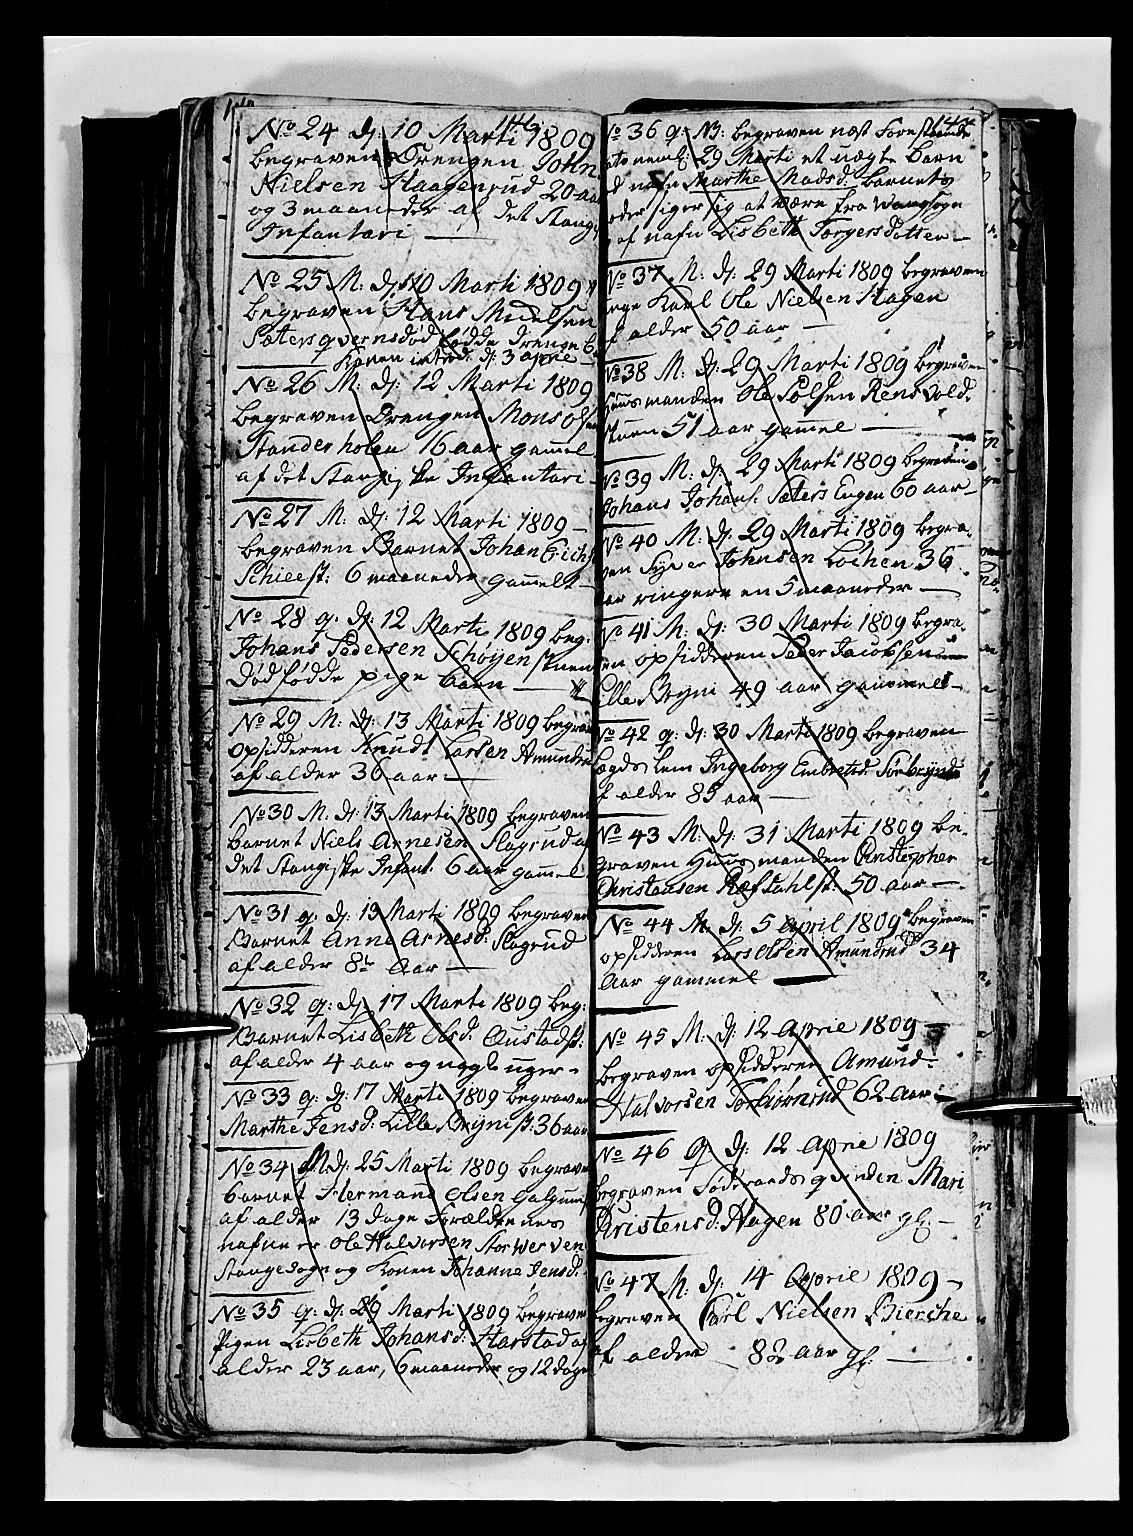 No 24 dj: 10 Marti 1809
begraven Drengen John
Nielsen Haagenrud 20 aar
og 3 maaneder af det Stang
Infantari
No 25 M: dj 10 Marti 1809
begraven Hans
Sæters qvernsdødfødde drenge b
Konen introd: dj: 3 aprie
No 26 M: dj: 12 Marti 1809
begraven Drengen Mons Ols
Standerholen 16 aar gammel
af det Stangiske Infantari
No 27 M: dj: 12 Marti 1809
begraven Barnet Johan Erichs
Schieest: 6 maaneder gammelt
No 28 q: dj: 12 Marti 1809 beg:
Johans Pedersen Schøyen stuen
Dødfødde pige barn
No 29 M: dj: 13 Marti 1809 begrav
opsidderen Knudt Larsen Amundru
af alder 36 aar
No 30 M: dj: 13 Marti 1809 begraven
barnet Niels Arnesen Slagrud af
det Stangiske Infant: 6 aar gammel
No 31 q: dj: 13 Marti 1809 begraven
Barnet Anne Arnesd: Slagrud
af alder 8te Aar
No 32 q: dj 17 Marti 1809 beg:
Barnet Lisbeth Olsd: Austadst:
af alder 4 aar og nogle uger
No 33 q: dj: 17 Marti 1809 begraven
Marthe Jensd: Lille Bryni st: 36 aar
No 34 M: dj: 25 Marti 1809 begrave
barnet Hermand Olsen Galgum
af alder 13 dage Forældrenes
nafne er Ole Halvorsen Storwerven
Stangesogn og Konen Johanne Jensd:
No 35 q: dj: 29 Marti 1809 begraven
Pigen Lisbeth Johansd: Harstad af
alder 23 aar, 6 maaneder og 12 dage
No 36 q: begraven næst Forestaaende
dato nemlig 29 Marti et uægte barn
nafn Marthe Madsd: barnets
oder siger sig at være fra Wangsogn
af nafn Lisbeth Torgersdatter
No 37 M: dj: 29 Marti 1809 begraven
Karl Ole Nielsen Hagen
f alder 50 aar
No 38 M: dj: 29 Marti 1809 begraven
Huusmanden Ole Polsen Rensvold
stuen 51 aar gammel
No 39 M: dj: 29 Marti 1809 begraven
Johans Johans: Sæters Engen 60 aar
No 40 M: dj 29 Marti 1809 begra
ven Syver Johnsen Løchen 36
aar ringere en 5 maaneder
No 41 M: dj: 30 Marti 1809 begra
en opsidderen Peder Jacobsen
Lille Bryni 49 aar gammel
No 42 q: dj: 30 Marti 1809 begraven
Lægds lem Ingeborg Embretsd:
f alder 85 aar
No 43 M: dj: 31 Marti 1809 be
graven Huusmanden Christopher
Christansen Ræfsdahlst: 50 aar
No 44 M: dj: 5 april 1809 begraven
opsidderen Lars Olsen Amundrud 34
Aar gammel
No 45 M: dj: 12 Aprie 1809
begraven opsidderen Amund
Halvorsen Torbiørnrud 62 aar
No 46 q: dj: 12 aprie 1809
begraven Føderaads qvinden Mari
Christensd: Hagen 80 aar gl:
No 47 M: dj: 14 Aprie 1809
begraven Nielsen Bierche
af alder 82 aar gl: